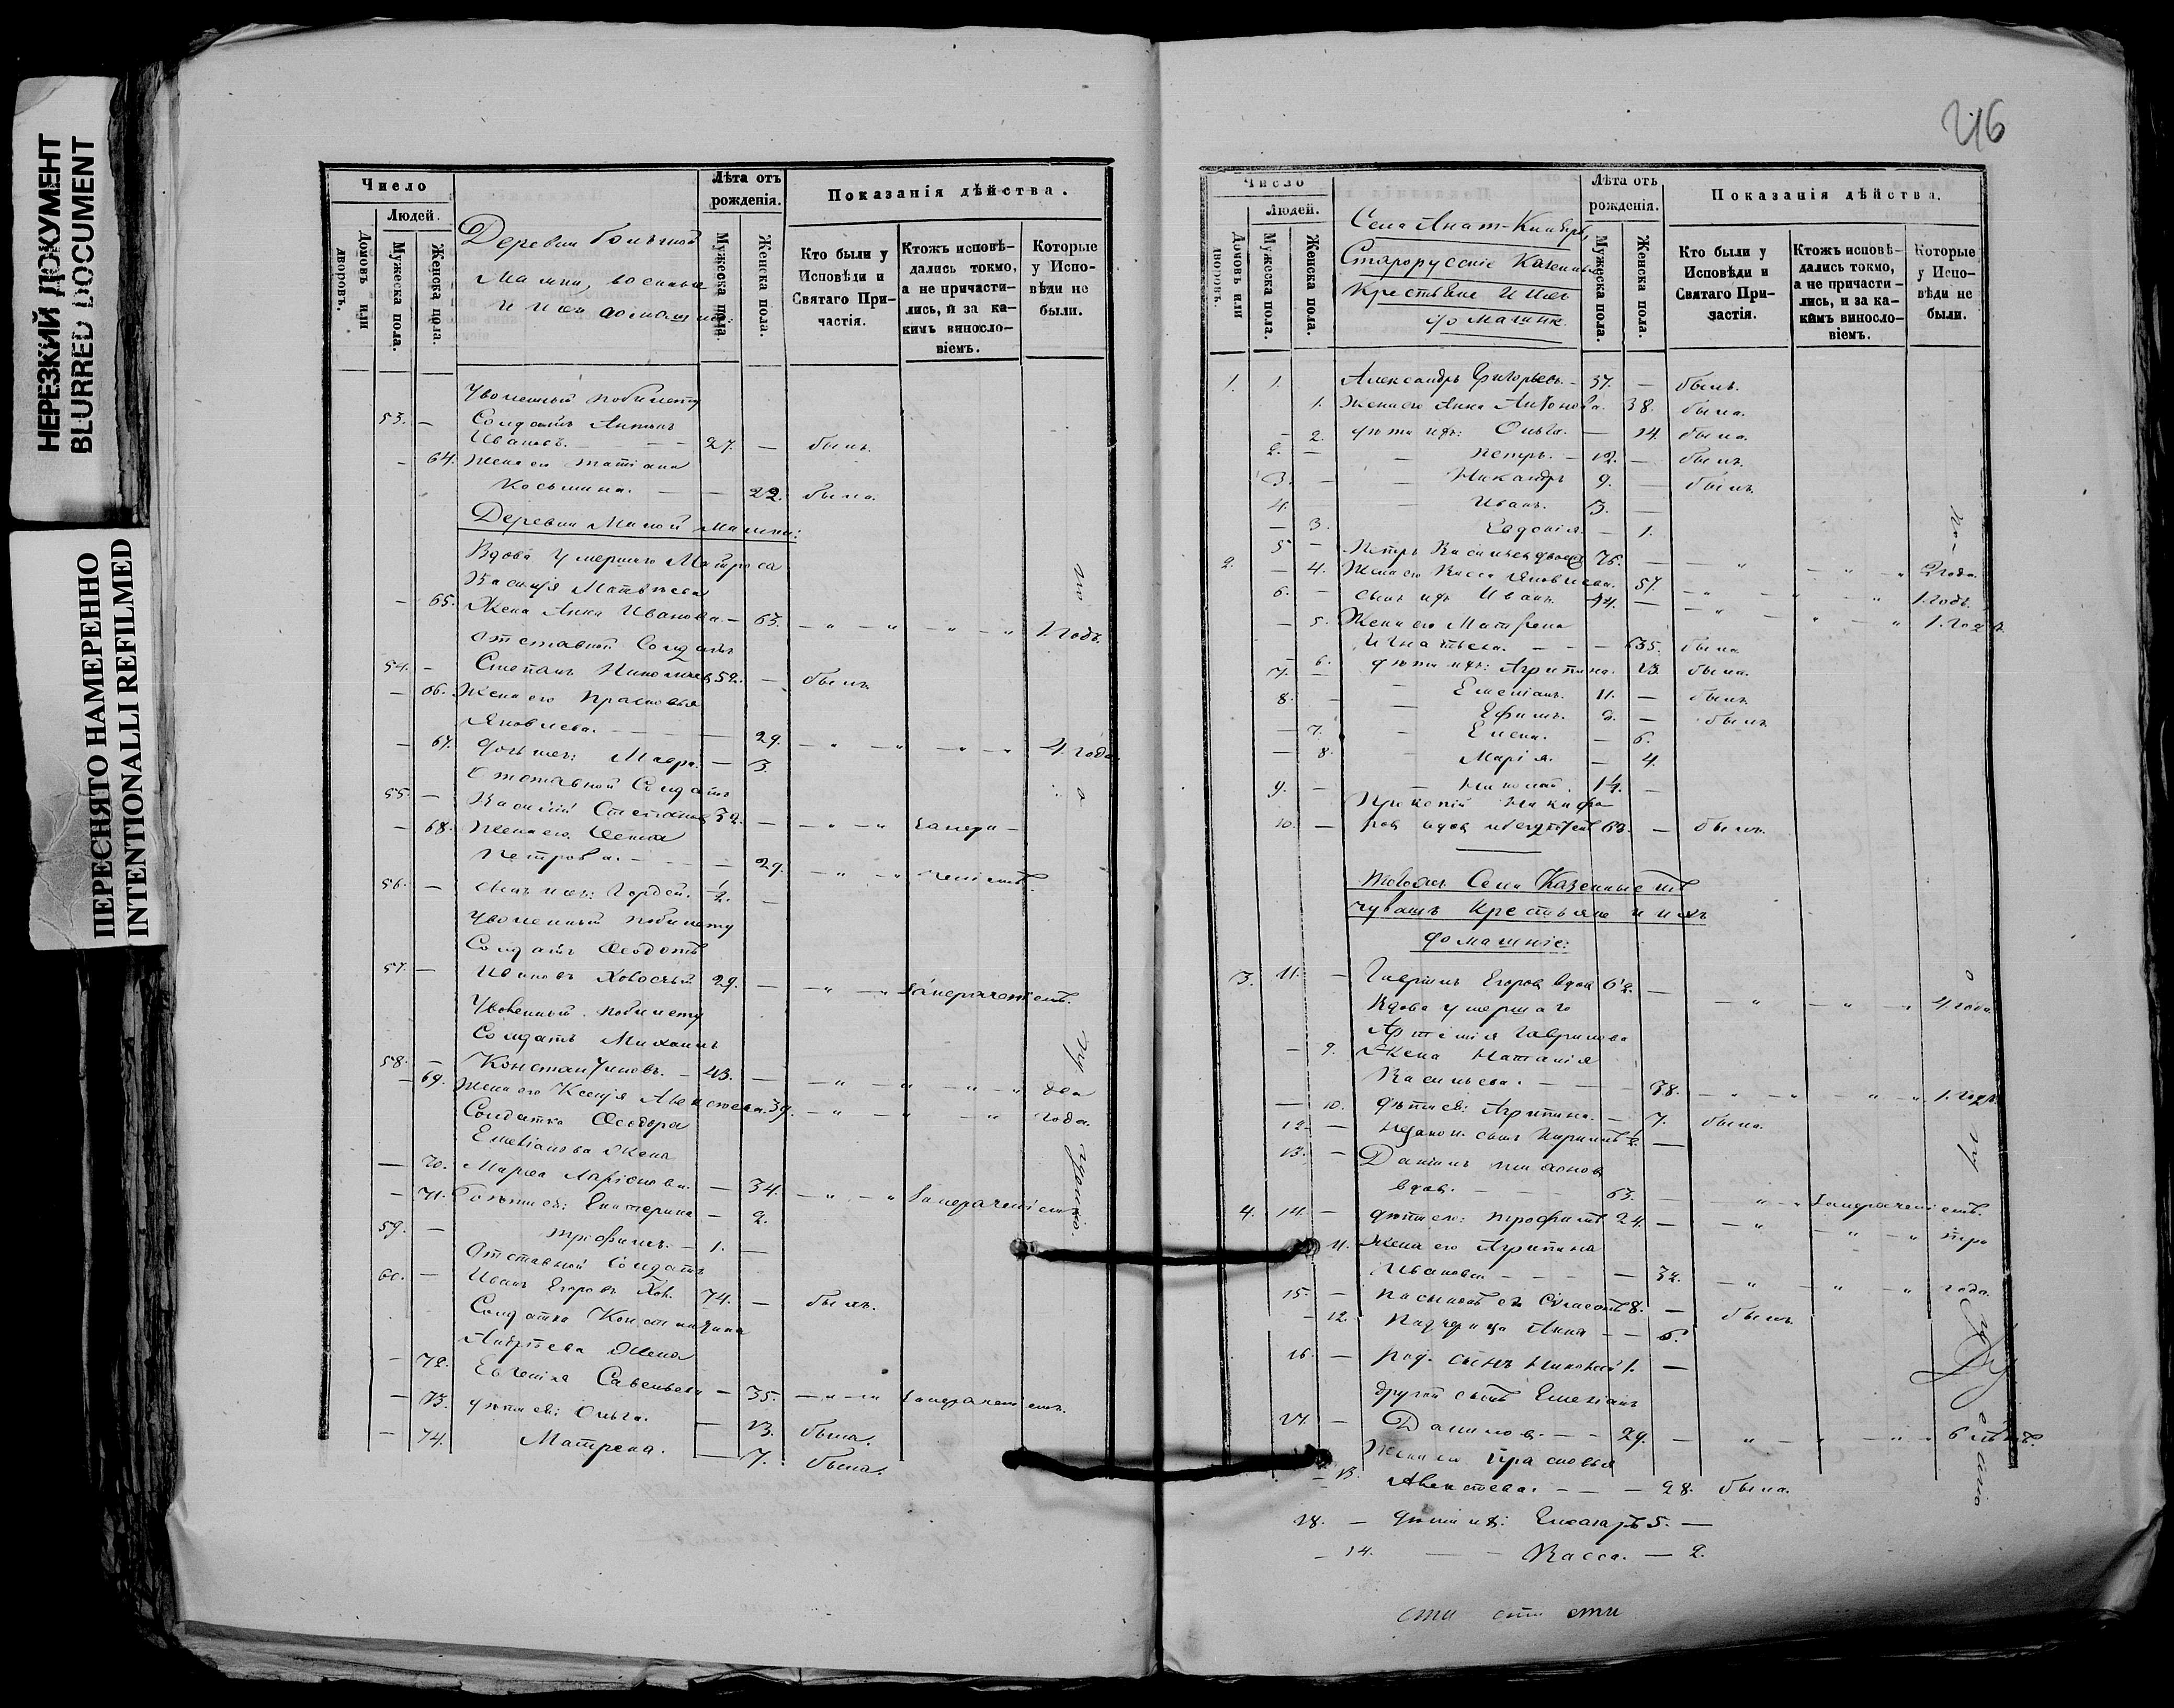 НЕРЕЗКИЙ ДОКУМЕНТ
BLURRED DOCUMENT
ПЕРЕСНЯТО НАМЕРЕННО
INTENTIONALLI REFILMED
Число
Людей.
Домовъ или дворовъ.
Мужеска пола.
Женска пола.
Деревни Большой
военные
и ихъ домашніе:
Лѣта отъ рожденія.
Мужеска пола.
Женска пола.
Показанія дѣйства.
Кто были у Исповѣди и Святаго Причастія.
Ктожъ исповѣ-
дались токмо,
а не причасти-
лись, и за ка-
кимъ винносло-
віемъ.
Которые
у Испо-
вѣди не
были.
Уволенный по билету
53. — Солдатъ Антонъ
Ивановъ. — 27. — былъ.
— 64. Жена его Татіана
Косьмина. — — 22. была.
Деревни Малой
Вдова умершаго Матроса
Василія Матвѣева
— 65. Жена Анна Иванова. — 63. — " — " — " — " 1. годъ.
Отставной Солдатъ
54. — Степанъ Николаевъ 52. — былъ.
— 66. Жена его Прасковья
Яковлева. — — 29.
— 67. дочь ихъ: Мавра. — 3. — " — " — " — " 4. года.
Отставной Солдатъ
55. — Василій Степановъ 32. — — " — " Запере-
— 68. Жена его
Петрова. — — 29. — " — " ченіемъ.
56. — сынъ ихъ: Гордей. ½. —
Уволенный по билету
Солдатъ Ѳеодотъ
57. — Ивановъ 29. — — " — "
Уволенный по билету
Солдатъ Михаилъ
58. — Константиновъ. — 43. — — " — " — " — " два
— 69. Жена его Ксенія Алексѣева. 39. — " — " года.
Солдатка Ѳеодора
Емеліанова Жена
— 70. Марѳа Ларіонова. — 34. — " — "
— 71. Екатерина — 2.
59. — Трофимъ. — 1. —
Отставной Солдатъ
60. — Иванъ Егоровъ 74. — былъ.
Солдатка Константина
Андрѣева Жена
— 72. Евгенія Савельева — 35. — " — "
— 73. дѣти ея: Ольга. — 13. была.
— 74. Матрена. — 7. была.
246
Число
Людей.
Домовъ или дворовъ.
Мужеска пола.
Женска пола.
Села
Старорусскіе Казенные
Крестьяне и ихъ
домашніе.
Лѣта отъ рожденія.
Мужеска пола.
Женска пола.
Показанія дѣйства.
Кто были у Исповѣди и Святаго Причастія.
Ктожъ исповѣ-
дались токмо,
а не причасти-
лись, и за ка-
кимъ виносло-
віемъ.
Которые
у Испо-
вѣди не
были.
1. 1. Александръ Григорьевъ. — 37. — былъ.
1. Жена его Анна Антонова. 38. была.
— 2. дѣти ихъ: Ольга. — 14. была.
2. — — Петръ. — 12. — былъ.
3. — — Никандръ 9. — былъ.
4. — Иванъ. 3. —
— 3. Евдокія. — 1.
2. 5 — Петръ Васильевъ 76. — — " — " — " 2 года.
— 4. Жена его Васса Яковлева. 57. — " — " — " 1. годъ.
6. — сынъ ихъ Иванъ. 44. — — " — " — " 1. годъ.
— 5. Жена его Матрена
Игнатьева. — — — 35. была.
— 6. дѣти ихъ: Агрипина. 13. была.
7. — — Емеліанъ. 11. — былъ.
8. — — Ефимъ. 9. — былъ.
— 7. — Елена. — 6.
— 8. — Марія. — 4.
9. — — Николай. 1½. —
Прокопій Никифо-
10. — ровъ вдовъ 62. — былъ.
Тогожъ Села Казенные изъ
чувашъ Крестьяне и ихъ
домашніе:
3. 11. — Гавріилъ Егоровъ вдовъ 62. — — " — " — " 4 года.
Вдова умершаго
Артемія Гаврилова
— 9. Жена Наталія
Васильева. — — — 38. — " — " — " — " 1. годъ.
— 10. дѣти ея: Агрипина. — 7. была.
12. — незакон. сынъ ½. —
13. — Даніилъ
вдовъ. — 63. — — " — "
4. 14. — дѣти его: Трофимъ 24. — — " — " — " три
11. Жена его Агрипина
Иванова — — — 32. — " — " — " года.
15. — пасынокъ его 8. — былъ.
— 12. Падчерица Анна — — 6.
16. — род. сынъ Николай 1. —
другой сынъ Емеліанъ
17. — Даниловъ. — — 29. — " — " — " 6 лѣтъ.
Жена его Прасковья
— 13. Алексѣева. — — — 28. была.
18. — дѣти ихъ: 5. —
— 14. — — Васса. — 2.